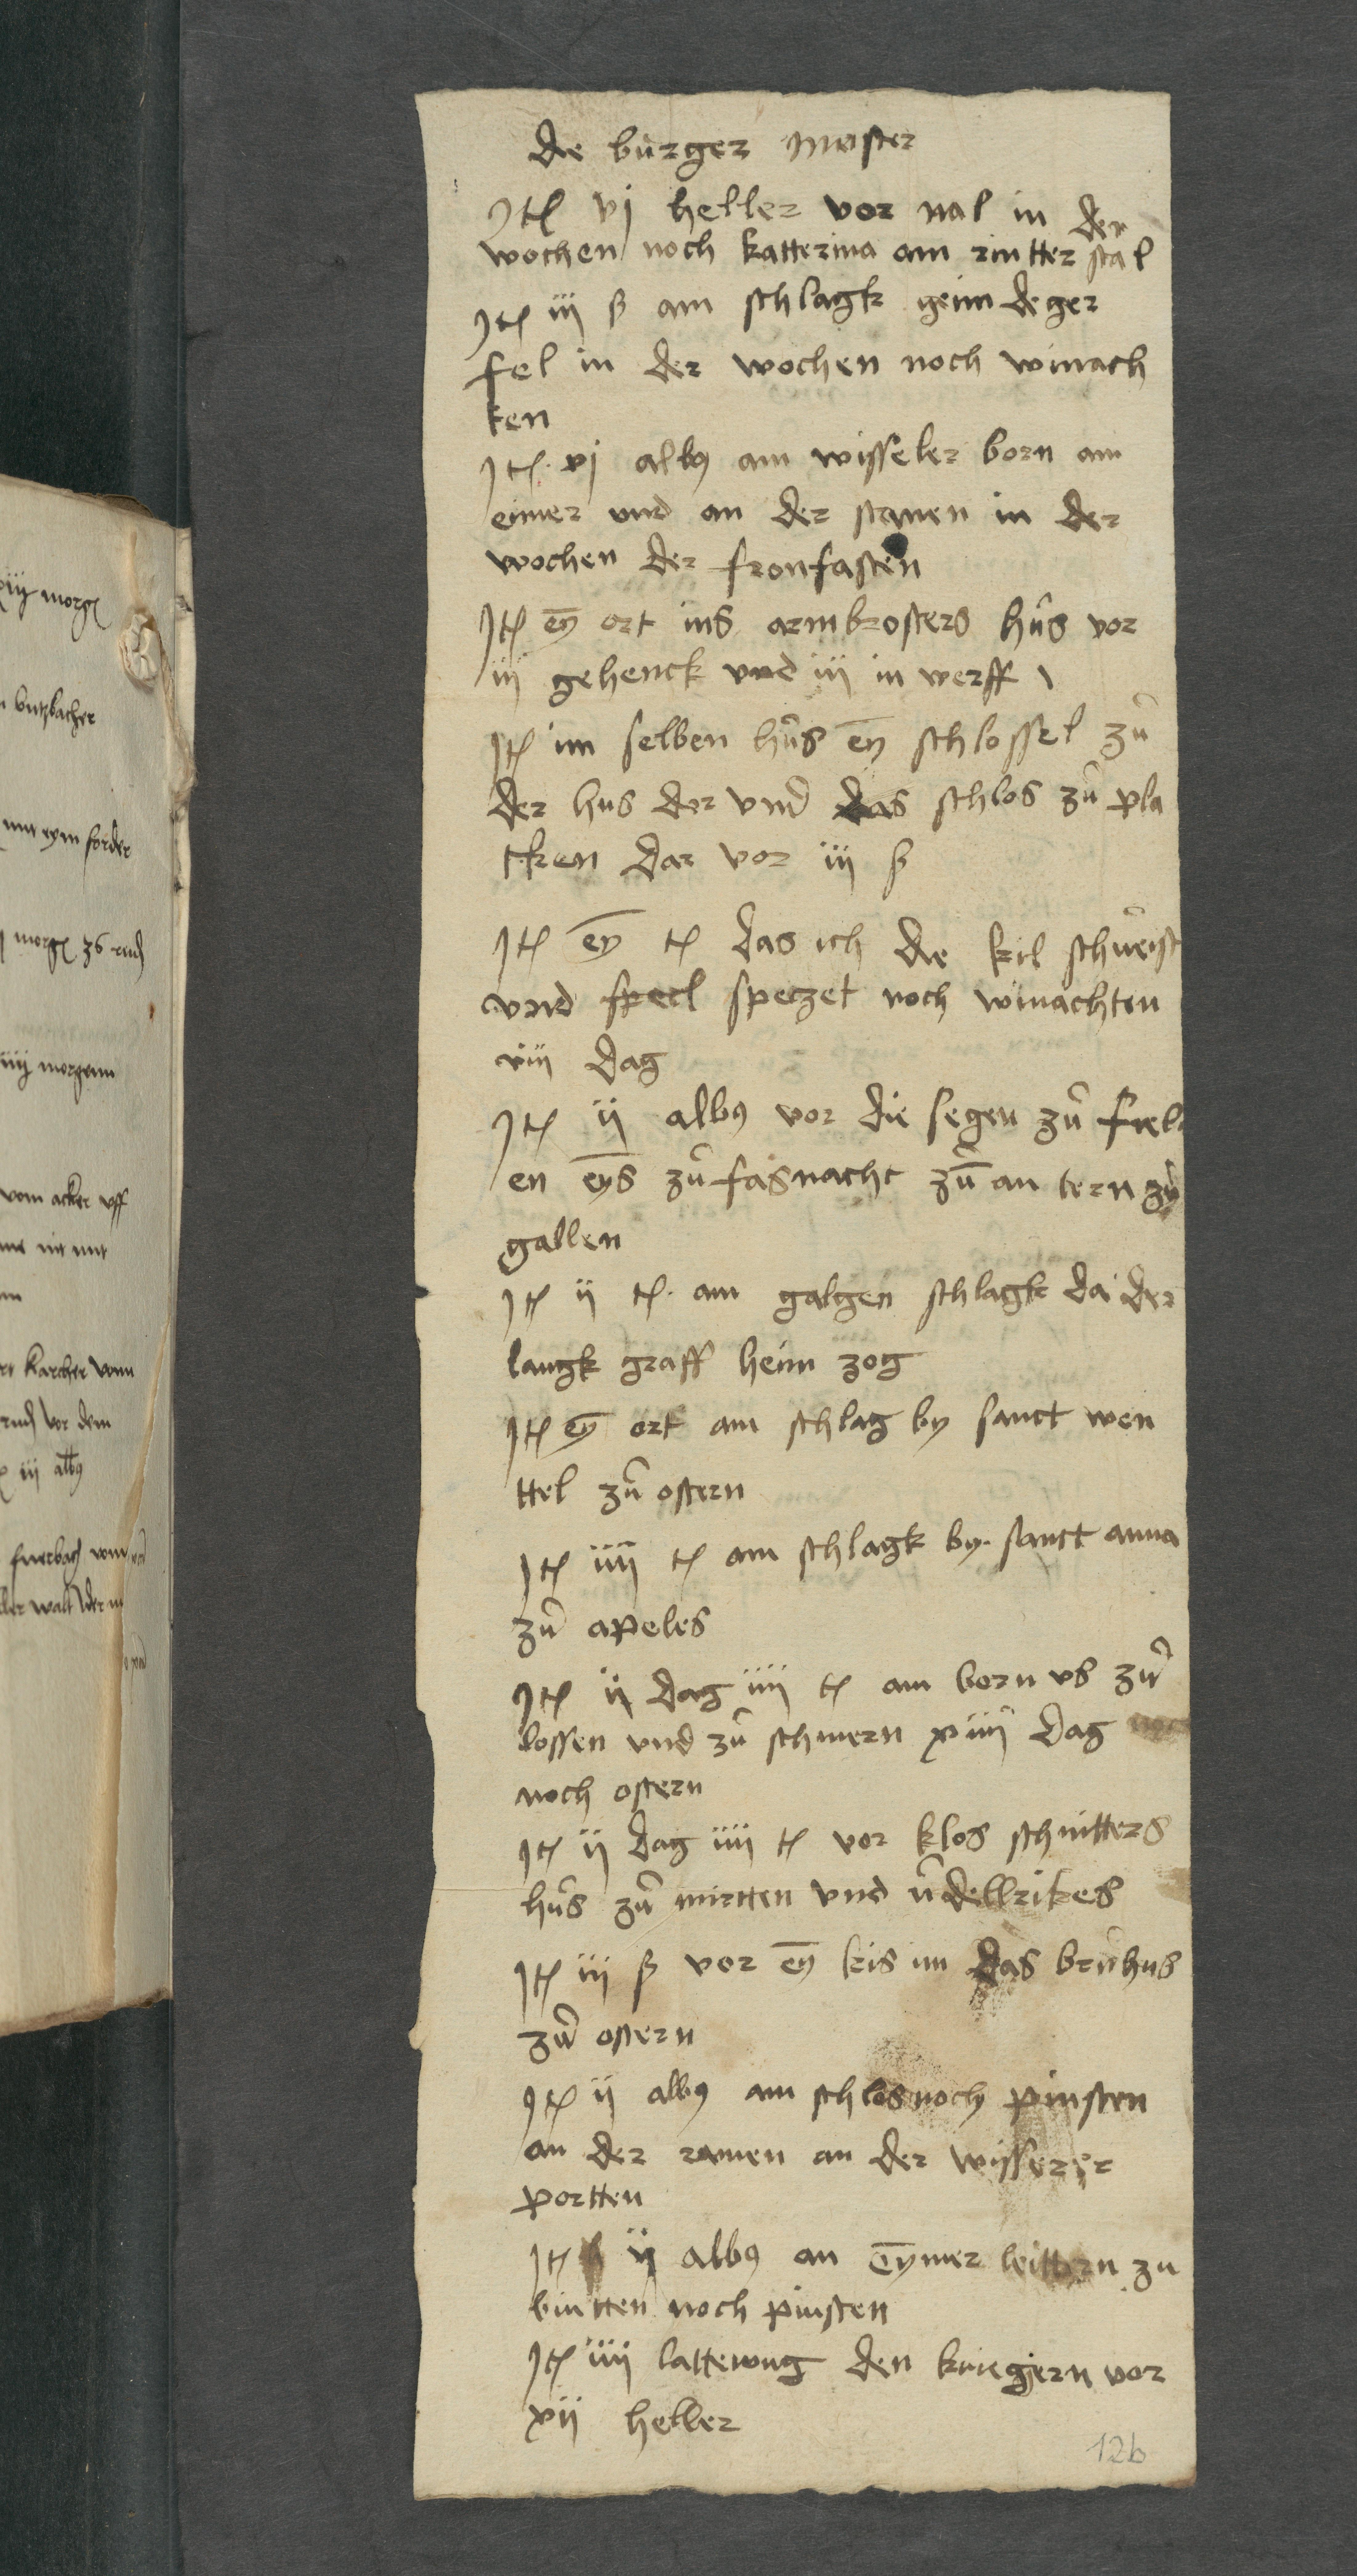 die burger meister
Jt vj heller vor nal in der
wochen noch katterina am rintter stal
Jt iij ß am schlagk geim deger
fel in der wochen noch winach
ten
Jt vj albus am wisseler born am
eimer vnd an der stanen in der
wochen der fronfasten
Jt eyn ort ins armbrosters hus vor
iij gehenck vnd iij in werff
Jt im selben hus eyn schlossel zu
der hus dor vnd das schlos zu pla
cken dar vor iij ß
Jt eyn t das ich die kil schweist
vnd speczet noch winachten
viij dag
Jt ij albus vor die segen zu fiel
en eyns zu fasnacht zum an tern zu
gallen
Jt ij t am galgen schlagk da der
langk graff heim zog
Jt eyn ort am schlag by sanct wen
ttel zu ostern
Jt iiij t am schlagk by sanct anna
zu apeles
Jt ij dag iiij t am born vs zu
lossen vnd zu schmern xiiij dag
noch ostern
Jt ij dag iiij t vor klos schnitters
hus zu mirtten vnd vdellrikes
Jt iij ß vor eyn kis im das bruhus
zu ostern
Jt ij albus am schlos noch pinsten
an der ramen an der wisserer
portten
Jt ij albus an eymer leittern zu
bintten noch pinsten
Jt iiij lattewng den kriegern vor
xij heller
12b
xiij morgen
butzbacher
mit eym forder
morgen 36 rud
iiij morgenn
vom acker vff
Karcher vom
rud vor dem
iij albus